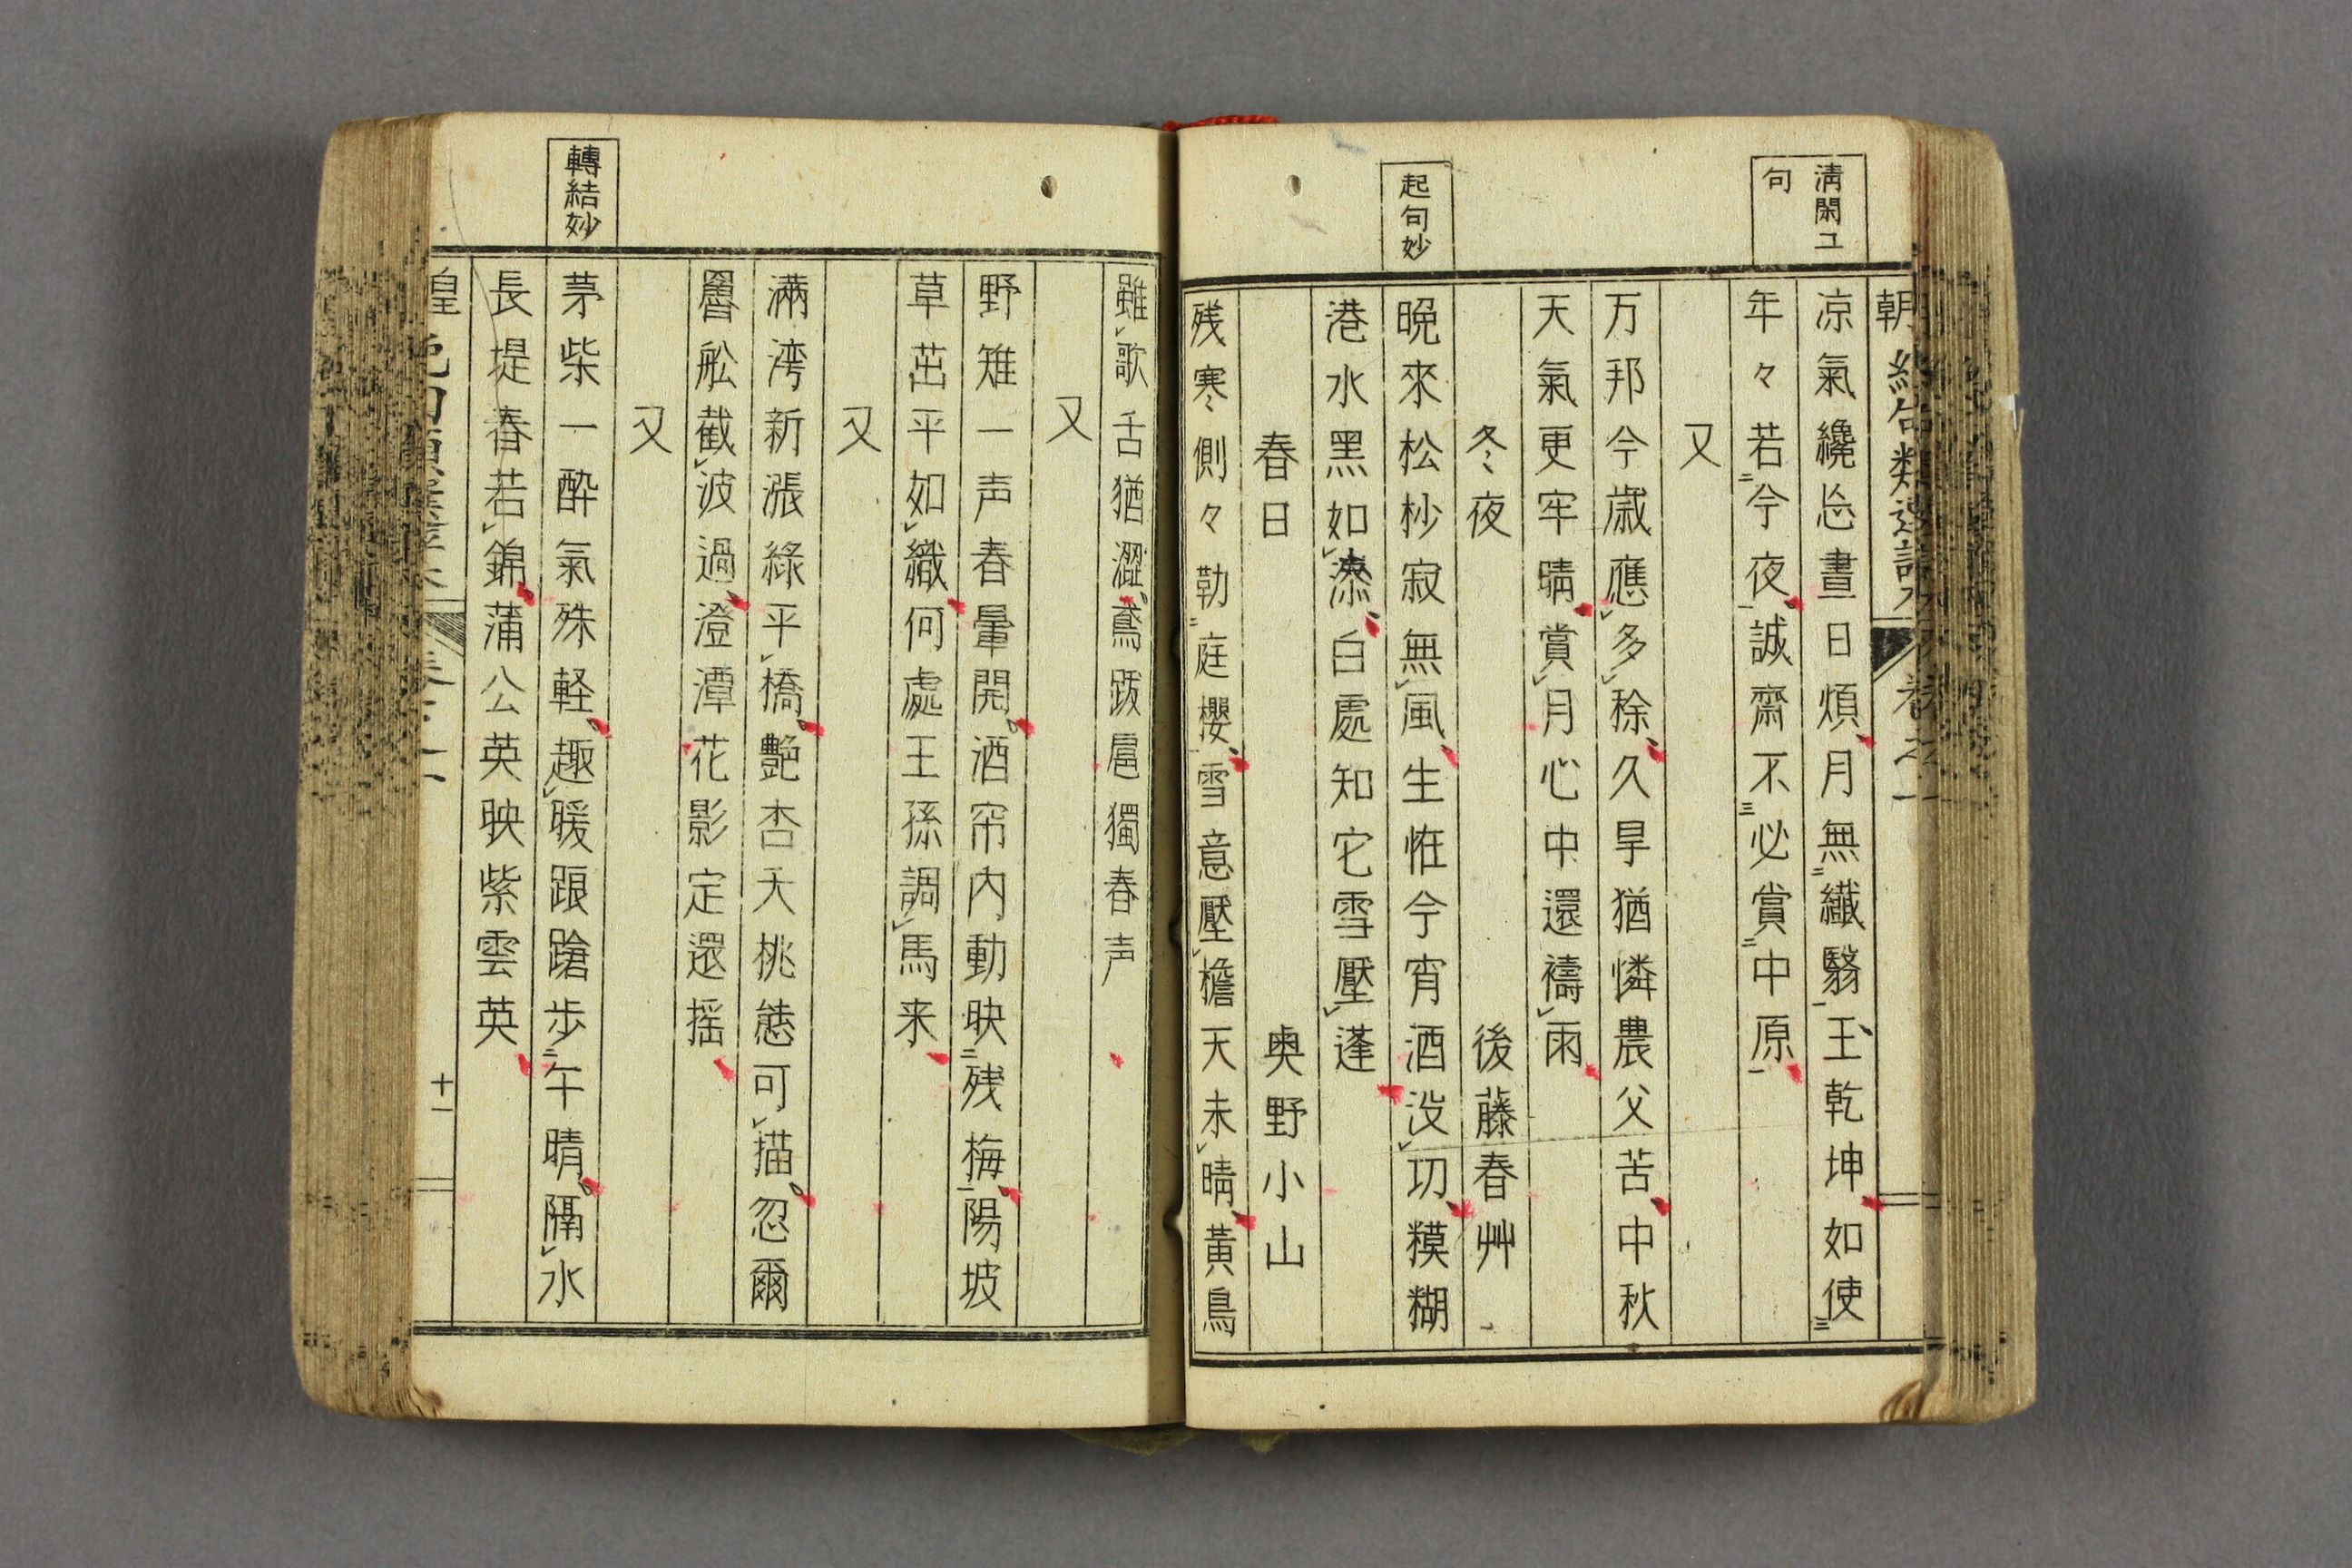 清閑ユ
句
起句妙
朝絶句類選評本 卷之一
凉氣纔忘晝日煩月無纖翳玉乾坤如使
年々若今夜誠齋不必賞中原
又
万邦今歳應多稌久旱猶憐農父苦中秋
天氣更牢晴賞月心中還禱雨
冬夜 後藤春艸
晩來松杪寂無風生怪今宵酒没功糢糊
港水黑如漆白處知它雪壓蓬
春日 奥野小山
残寒側々勒庭櫻雪意壓檐天未晴黃鳥
轉結妙
雖歌舌猶澀鳶跋扈獨春声
又
野雉一声春暈開酒帘内動映残梅陽坡
草茁平如織何處王孫調馬来
又
滿湾新漲綠平橋艶杏夭桃態可描忽爾
罾舩截波過澄潭花影定還揺
又
茅柴一酔氣殊軽趣暖踉蹌歩午晴隔水
長堤春若錦蒲公英映紫雲英
十一